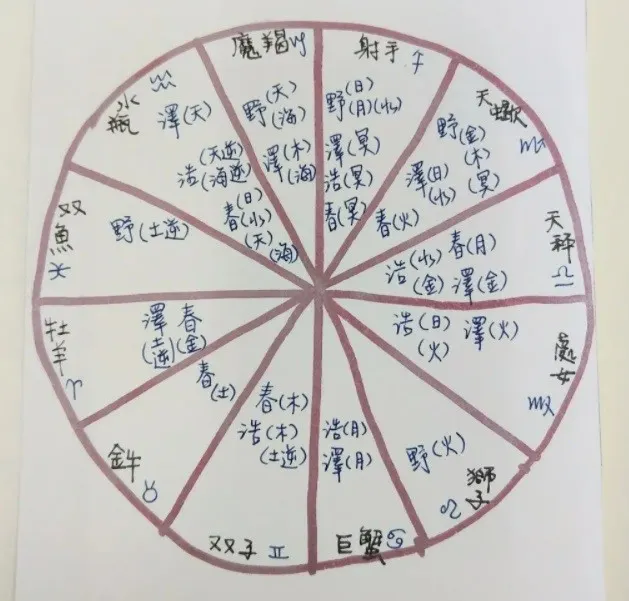 魔羯♑
野(天)
(海)
澤(木)
(海)
射手♐
野(日)
(月)(水)
澤(冥)
浩(冥)
春(冥)
天蠍
♏
野(金)
木
澤(日)(冥)
(水)
春(火)
天秤
♎
浩(水)春(月)
(金)澤(金)
處女
♍
浩(日)澤(火)
(火)
獅子
♌
野(火)
巨蟹♋
浩(月)
澤(月)
双子♊
春(木)
浩(木)
(土逆)
金牛
♉
春
(土)
牡羊
♈
澤春
(土逆)(金)
双魚
♓
野(土逆)
水瓶
♒
澤(天)
浩(天逆)
(海逆)
春(日)
(水)
(天)
(海)